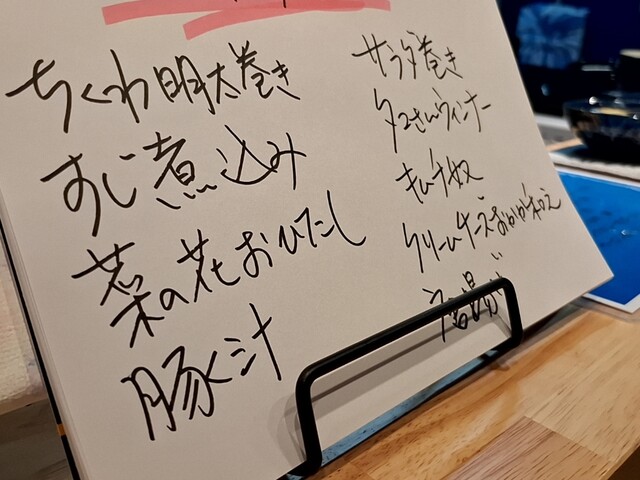 ちくわ明太巻き
すじ煮込み
菜の花おひたし
豚汁
サラダ巻き
タコさんウィンナー
キムチ奴
クリームチーズおかか和え